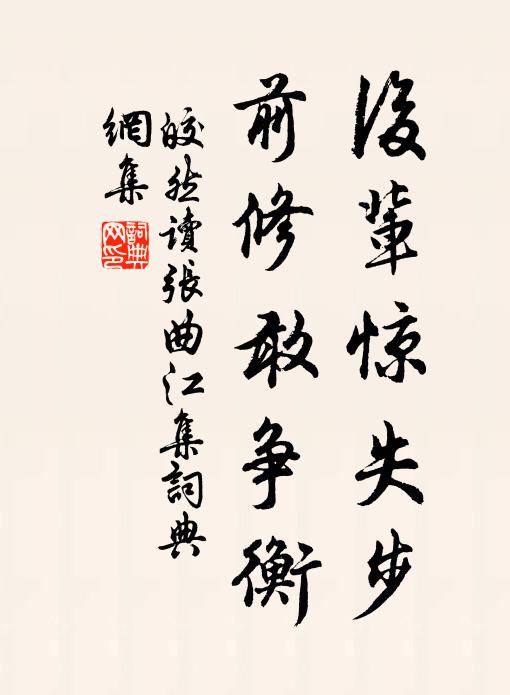 後輩惊失步
前修敢争衡
皎然讀張曲江集詞典
網集
詞典
网印